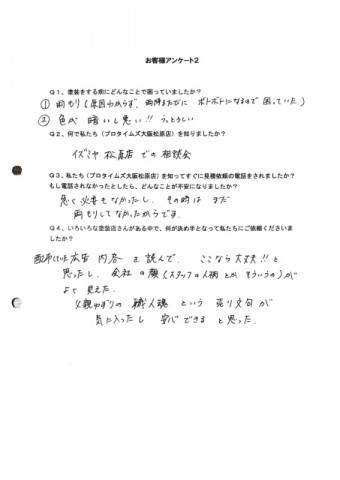 お客様アンケート2
Q1、塗装をする前にどんなことで困っていましたか？
① 雨もり(原因わからず、雨降るたびに ボトボトになるので困っていた)
② 色が 暗いし悪い!! うっとうしい
Q2、何で私たち（プロタイムズ大阪松原店）を知りましたか？
イズミヤ 松原店 での 相談会
Q3、私たち（プロタイムズ大阪松原店）を知ってすぐに見積依頼の電話をされましたか？
もし電話されなかったとしたら、どんなことが不安になりましたか？
急ぐ必要もなかったし、その時は まだ
雨もりしてなかったからです。
Q4、いろいろな塗装店さんがある中で、何が決め手となって私たちにご依頼くださいま
したか？
配布していた広告 内容 を読んで、ここなら大丈夫!!と
思ったし、会社の顔(スタッフの人柄とかそういうの)が
よく見えた。
父親ゆずりの 職人魂 という 売り文句が
気に入ったし 安心できる と思った。